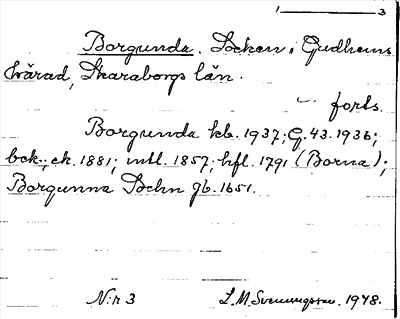 1 3
Borgunda. Socken i Gudhems
härad, Skaraborgs län.
forts.
Borgunda kb. 1937; G. 43. 1936;
bck.; ck. 1881; mtl. 1857; hfl. 1791 (Borna);
Borgunna Sochn gb. 1651.
N:r 3 L. M. Svenungsson. 1948.